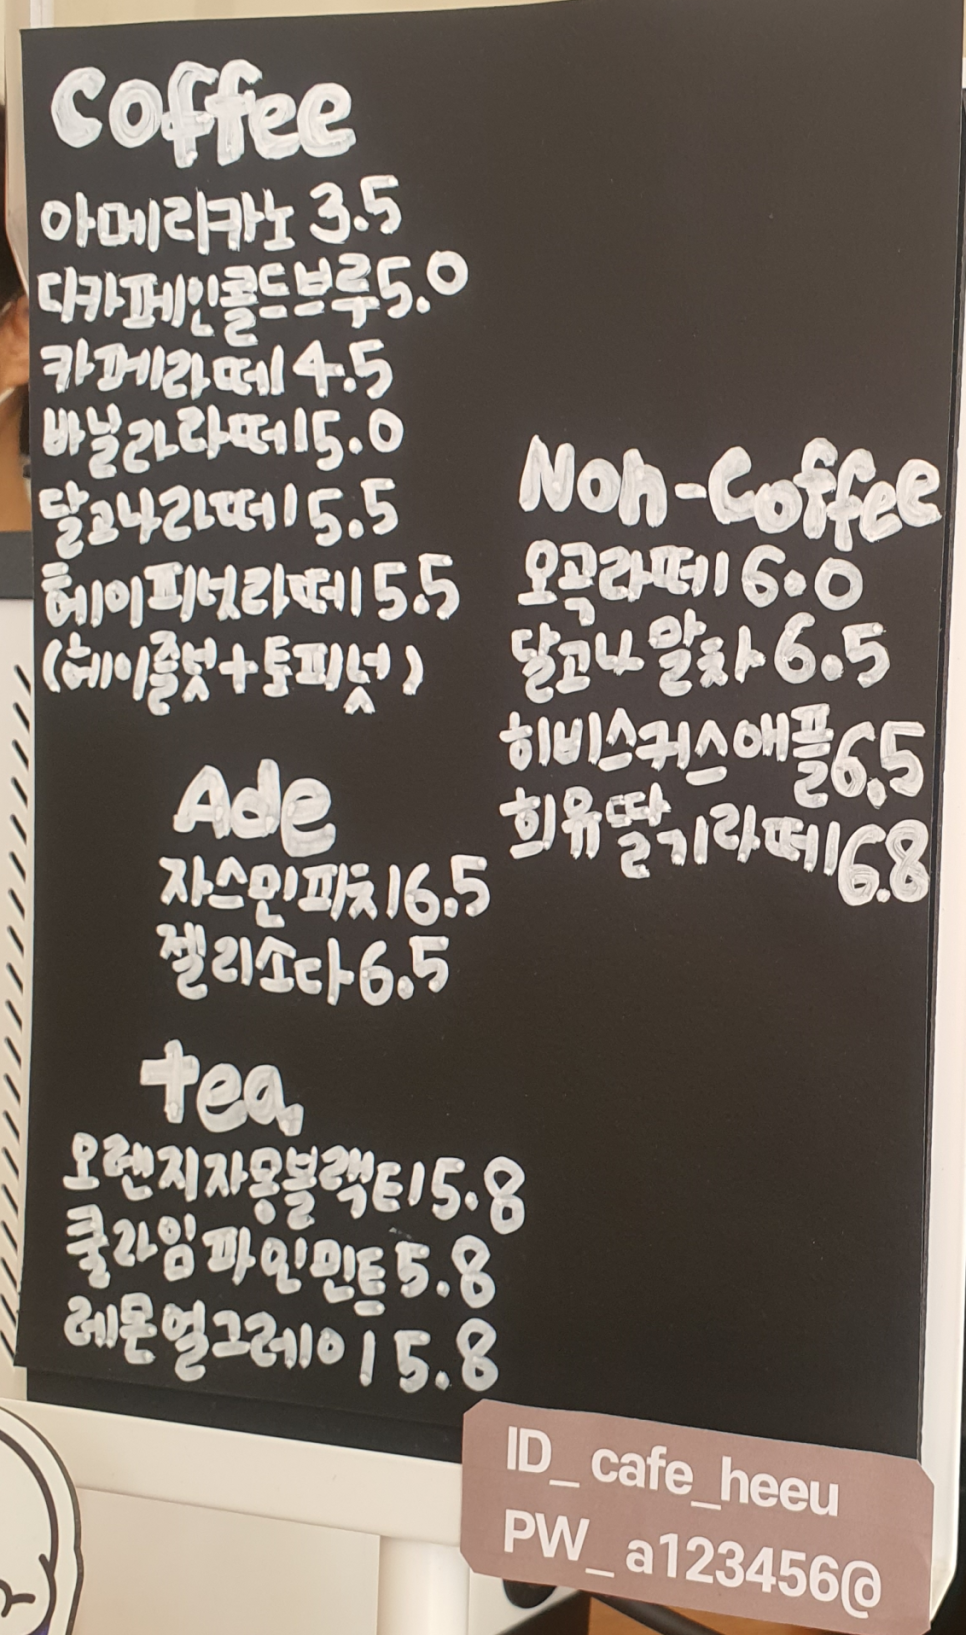 Coffee
아메리카노 3.5
디카페인콜드브루 5.0
카페라떼 4.5
바닐라라떼 5.0
달고나라떼 5.5
헤이피넛라떼 5.5
(헤이즐넛+토피넛)
Ade
자스민피치 6.5
젤리소다 6.5
tea
오렌지자몽블랙티 5.8
쿨라임파인민트 5.8
레몬얼그레이 5.8
Non-Coffee
오곡라떼 6.0
달고나말차 6.5
히비스커스애플 6.5
희유딸기라떼 6.8
ID_cafe_heeu
PW_a123456@